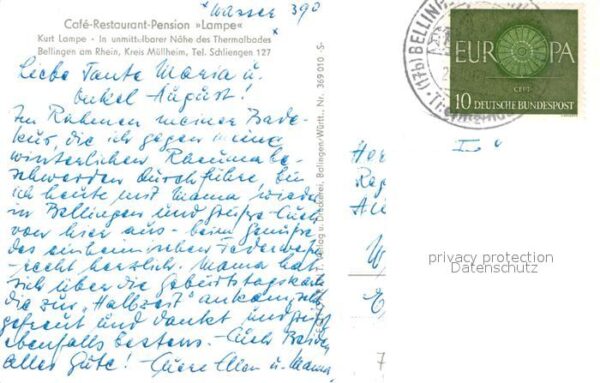 *Wasser 39°*
Café-Restaurant-Pension »Lampe«
Kurt Lampe - In unmittelbarer Nähe des Thermalbades
Bellingen am Rhein, Kreis Müllheim, Tel. Schliengen 127
Liebe Tante Maria u.
Onkel August!
Im Rahmen meiner Bade-
kur, die ich gegen meine
winterlichen Rheumabe-
schwerden durchführe, bin
ich heute mit Mama wieder
in Bellingen und grüße Euch
von hier aus - beim Genuße
des einheimischen
- recht herzlich. Mama hat
sich über die Geburtstagskarte
die zur "Halbzeit" ankam, sehr
gefreut und dankt und grüßt
ebenfalls bestens. Euch Beiden
alles Gute! - Eure Ellen u. Mama
Verlag u. Druckerei, Balingen/Württ., Nr. 369 010 -S-
(17b) BELLING
EUROPA
CEPT
10 DEUTSCHE BUNDESPOST
privacy protection
Datenschutz